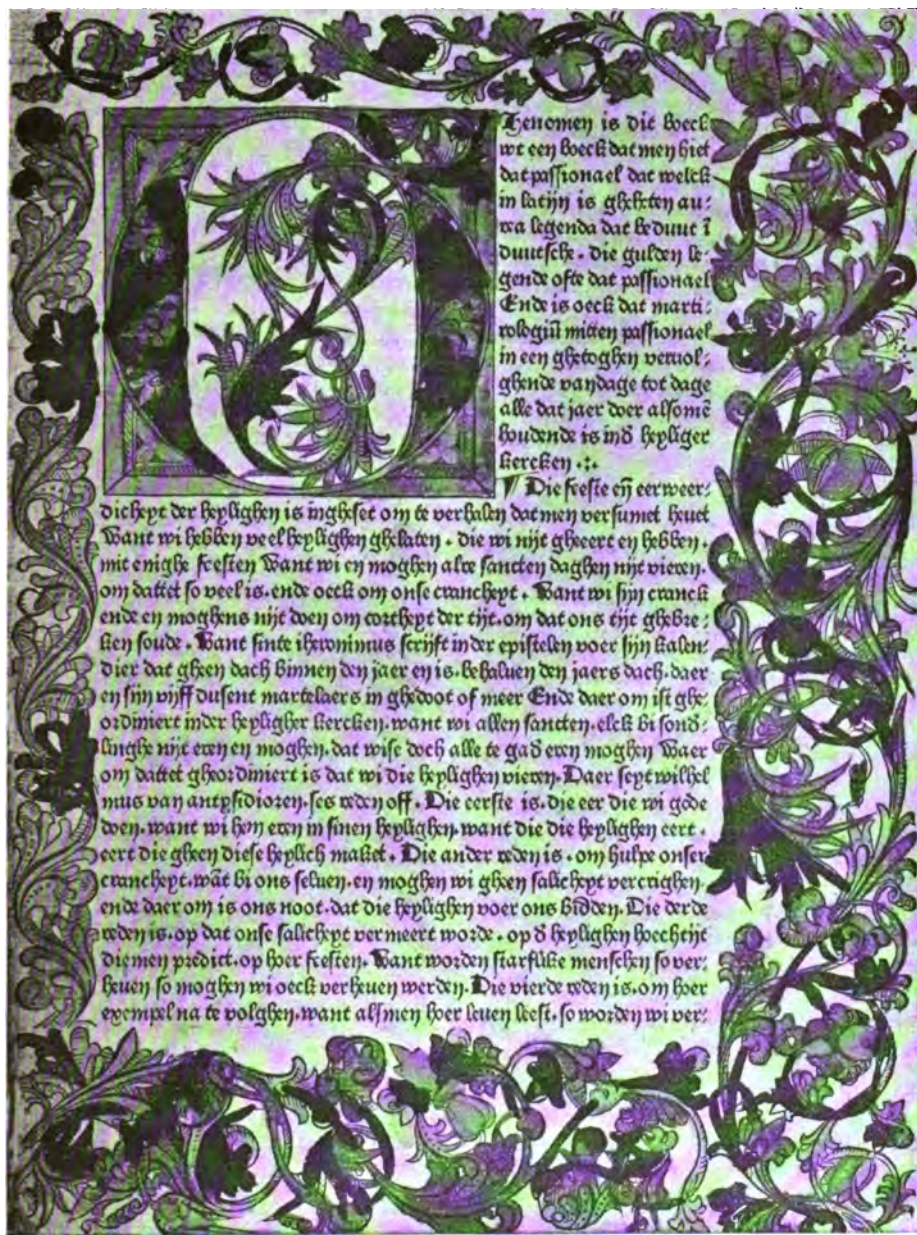 Ghenomen is dit boeck
wt een boeck dat men hiet
dat passionael dat welck
in latijn is gheheten au⸗
rea legenda dat beduut ī
duutsche. die gulden le⸗
gende ofte dat passionael
Ende is oeck dat marti⸗
rologiū mitten passionael
in een ghetoghen veruol⸗
ghende vandage tot dage
alle dat jaer doer alsomē
houdende is ind heyliger
kercken .:.
Die feeste eñ eerweer⸗
dicheyt der heylighen is ingheset om te verhalen dat men versumet heuet
Want wi hebben veel heylighen ghelaten. die wi nijt gheeert en hebben.
mit enighe feesten Want wi en moghen alre sancten daghen nijt vieren.
om dattet so veel is. ende oeck om onse cranckheyt. Want wi sijn cranck
ende en moghens nijt doen om cortheyt der tijt. om dat ons tijt ghebre⸗
ken soude. Want sinte iheronimus scrijft inder epistelen voer sijn kalen⸗
dier dat gheen dach binnen den jaer en is. behaluen den jaers dach. daer
en sijn vijff dusent martelaers in ghedoot of meer Ende daer om ist ghe
ordiniert inder heyligher kercken. want wi allen sancten. elck bi sond⸗
linghe nijt eren en moghen. dat wise doch alle te gad eren moghen Waer
om dattet gheordiniert is dat wi die heylighen vieren. Daer seyt wilhel
mus van antysidioren. ses reden off. Die eerste is. die eer die wi gode
doen. want wi hem eren in sinen heylighen. want die die heylighen eert.
eert die gheen diese heylich maket. Die ander reden is. om hulpe onser
cranckheyt. wāt bi ons seluen. en moghen wi gheen salicheyt vercrighen.
ende daer om is ons noot. dat die heylighen voer ons bidden. Die derde
reden is. op dat onse salicheyt vermeert worde. op d heylighen hoechtijt
diemen predict. op hoer feesten. Want worden starflike menschen so ver⸗
heuen so moghen wi oeck verheuen werden. Die vierde reden is. om hoer
exempel na te volghen. want alsmen hoer leuen leest. so worden wi ver⸗